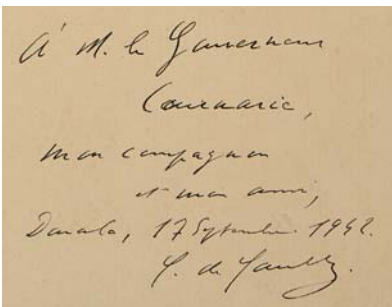 À M. le Gouverneur
Cournarie,
mon compagnon
et mon ami,
Douala, 17 Septembre 1942.
C. de Gaulle.